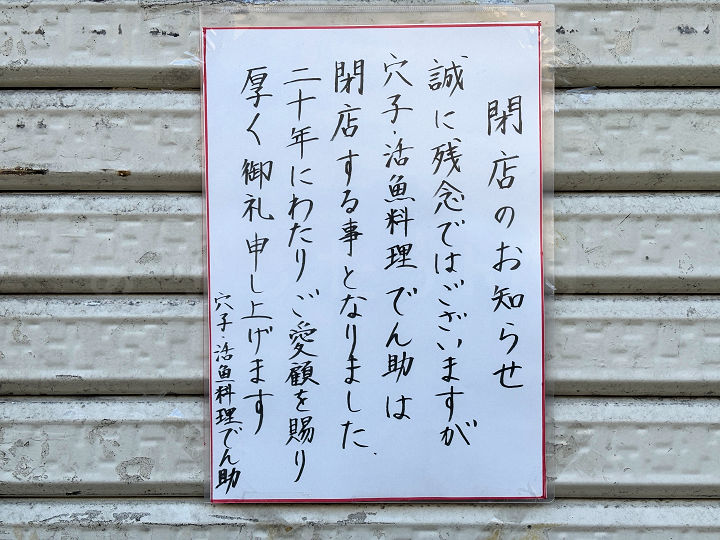 閉店のお知らせ
誠に残念ではございますが
穴子・活魚料理でん助は
閉店する事となりました.
二十年にわたりご愛顧を賜り
厚く御礼申し上げます
穴子・活魚料理でん助